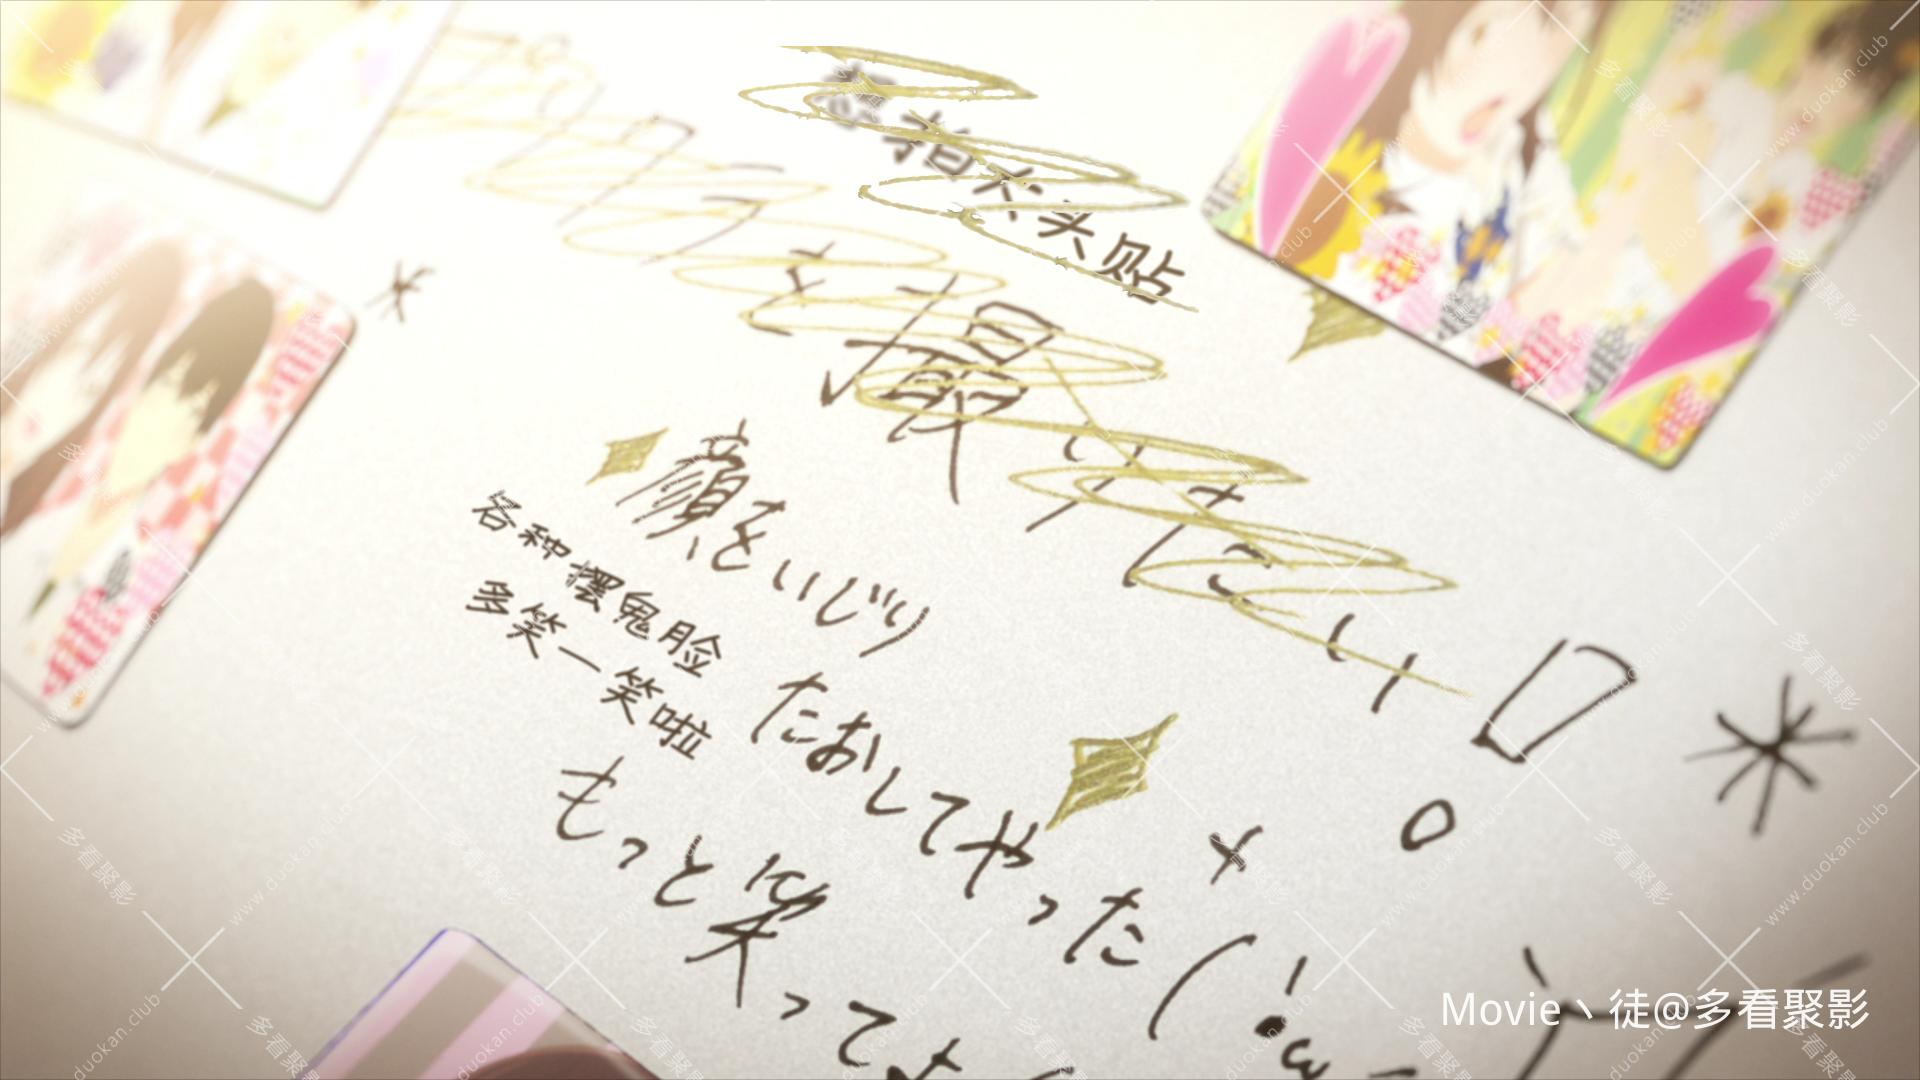 想拍大头贴
プリクラと撮りたい!
顔をいじり
たおしてやった(´ω
各种摆鬼脸
多笑一笑啦
もっと笑って
Movie丶徒@多看聚影
多看聚影
www.duokan.club